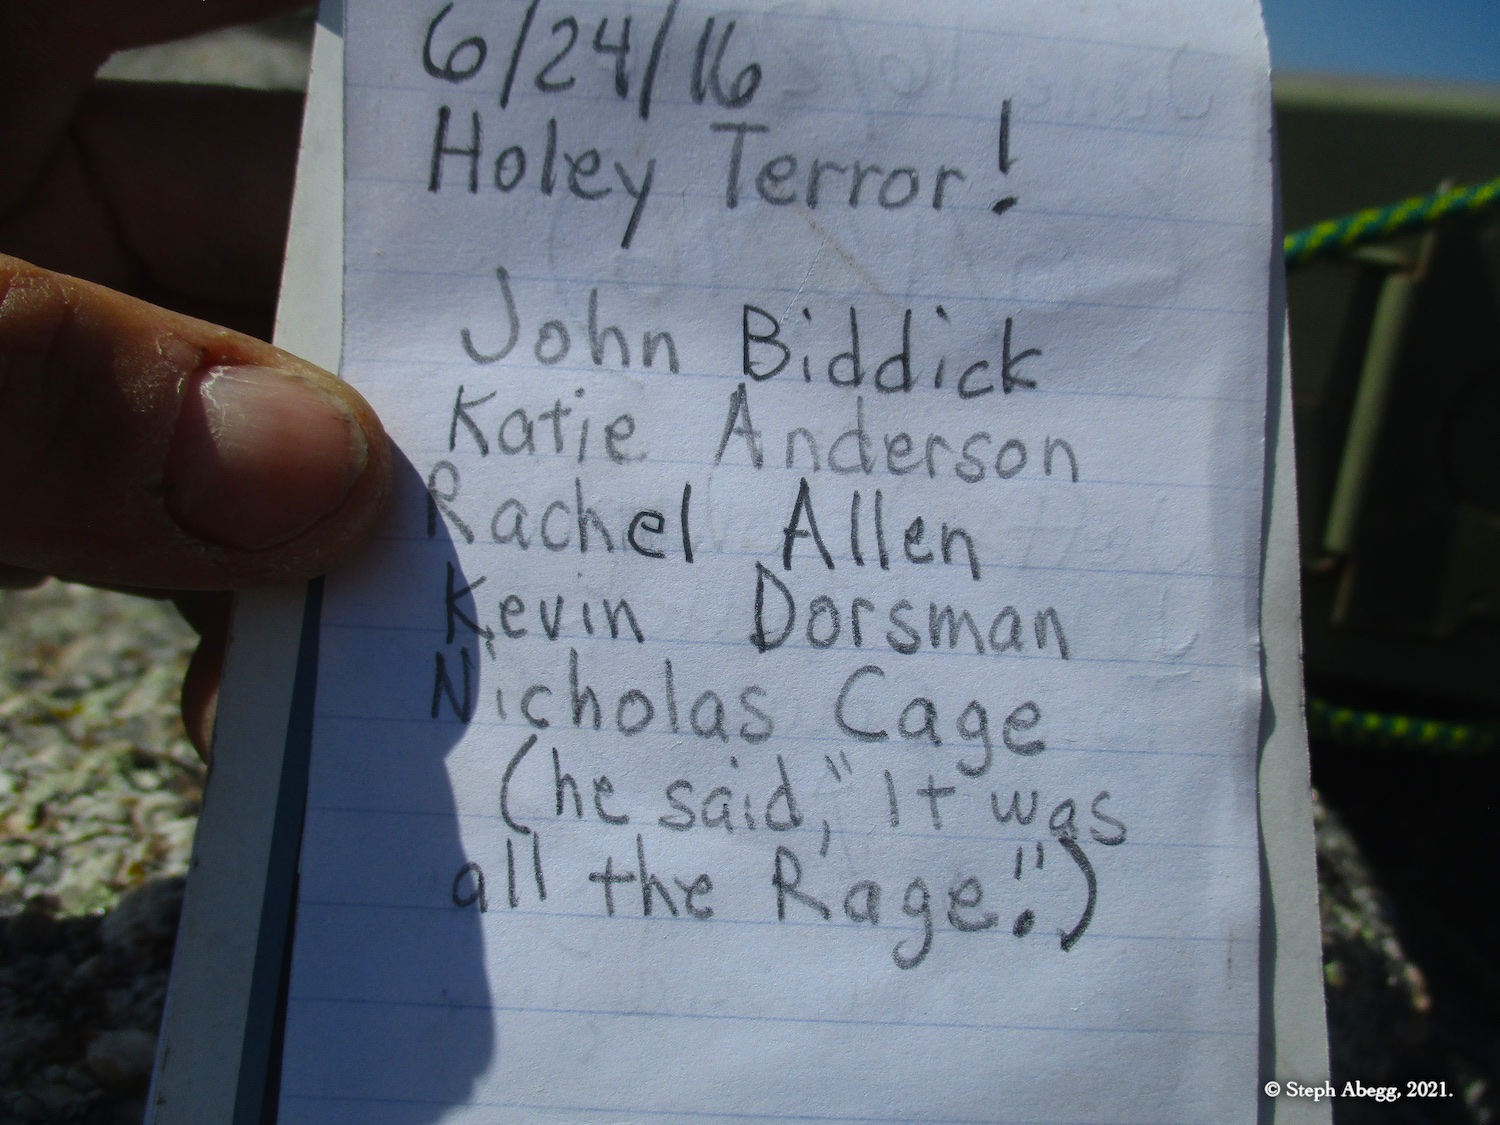 6/24/16
Holey Terror!
John Biddick
Katie Anderson
Rachel Allen
Kevin Dorsman
Nicholas Cage
(he said, "It was
all the Rage.")
© Steph Abegg, 2021.